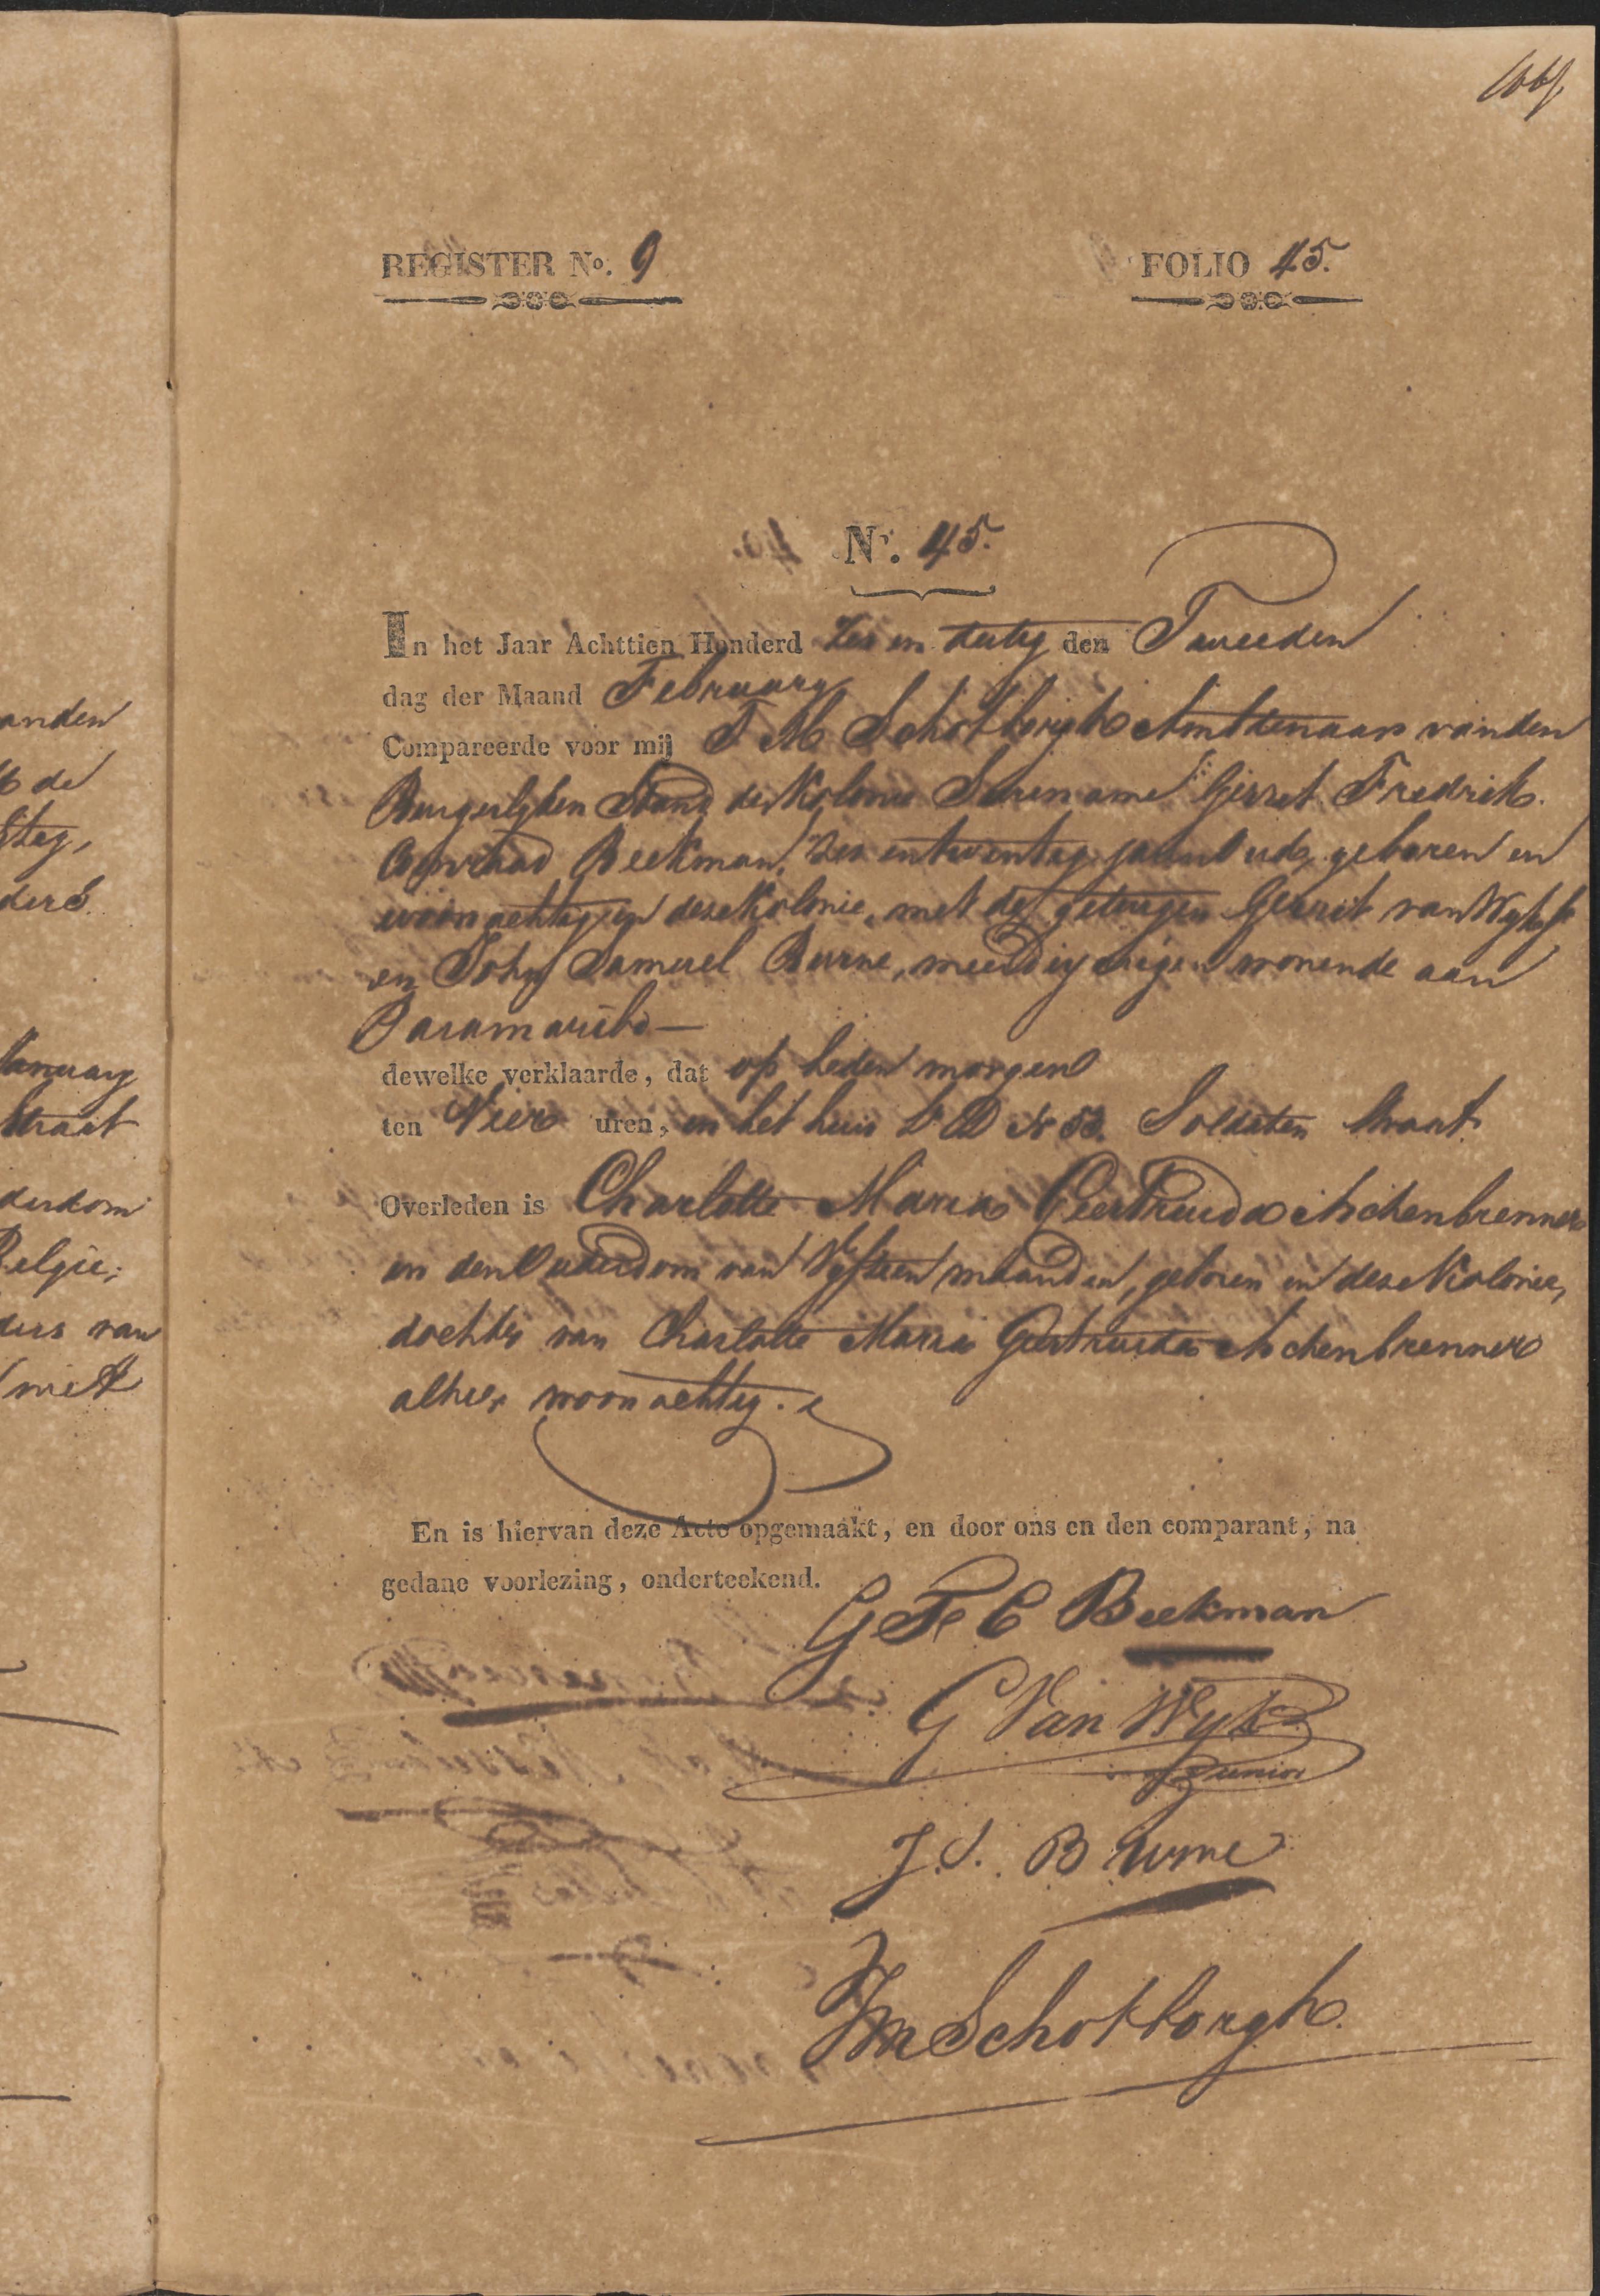 anden
de
stag,
derd.
January
straat
derdom
Belgie;
ders van
met
REGISTER No. 9
FOLIO 45.
No. 45.
In het Jaar Achttien Honderd Zes en dertig den Tweeden
dag der Maand February
Compareerde voor mij J M Schotborgh Amtenaar van den
Burgerlyken Stand der Kolonie Suriname Gerret Fredrik
Conraad Beekman, Zes en twentig jaaren oud, geboren en
woonachtig in deze Kolonie, met de getuigen Gerrit van Wyk Jr
en John Samuel Burne, meerderjarigen wonende aan
Paramaribo —
dewelke verklaarde, dat op heden morgen
ten Vier uren, in het huis Lr D No 53. Soldaten straat
Overleden is Charlotte Maria Geertruida Aschenbrenner
in den Ouderdom van Vyftien maanden, geboren in deze Kolonie,
dochter van Charlotte Maria Geertruida Aschenbrenner
alhier woonachtig.
En is hiervan deze Acte opgemaakt, en door ons en den comparant, na
gedane voorlezing, onderteekend.
G F C Beekman
G Van Wyk
Junior
J. S. Burne
JM Schotborgh.